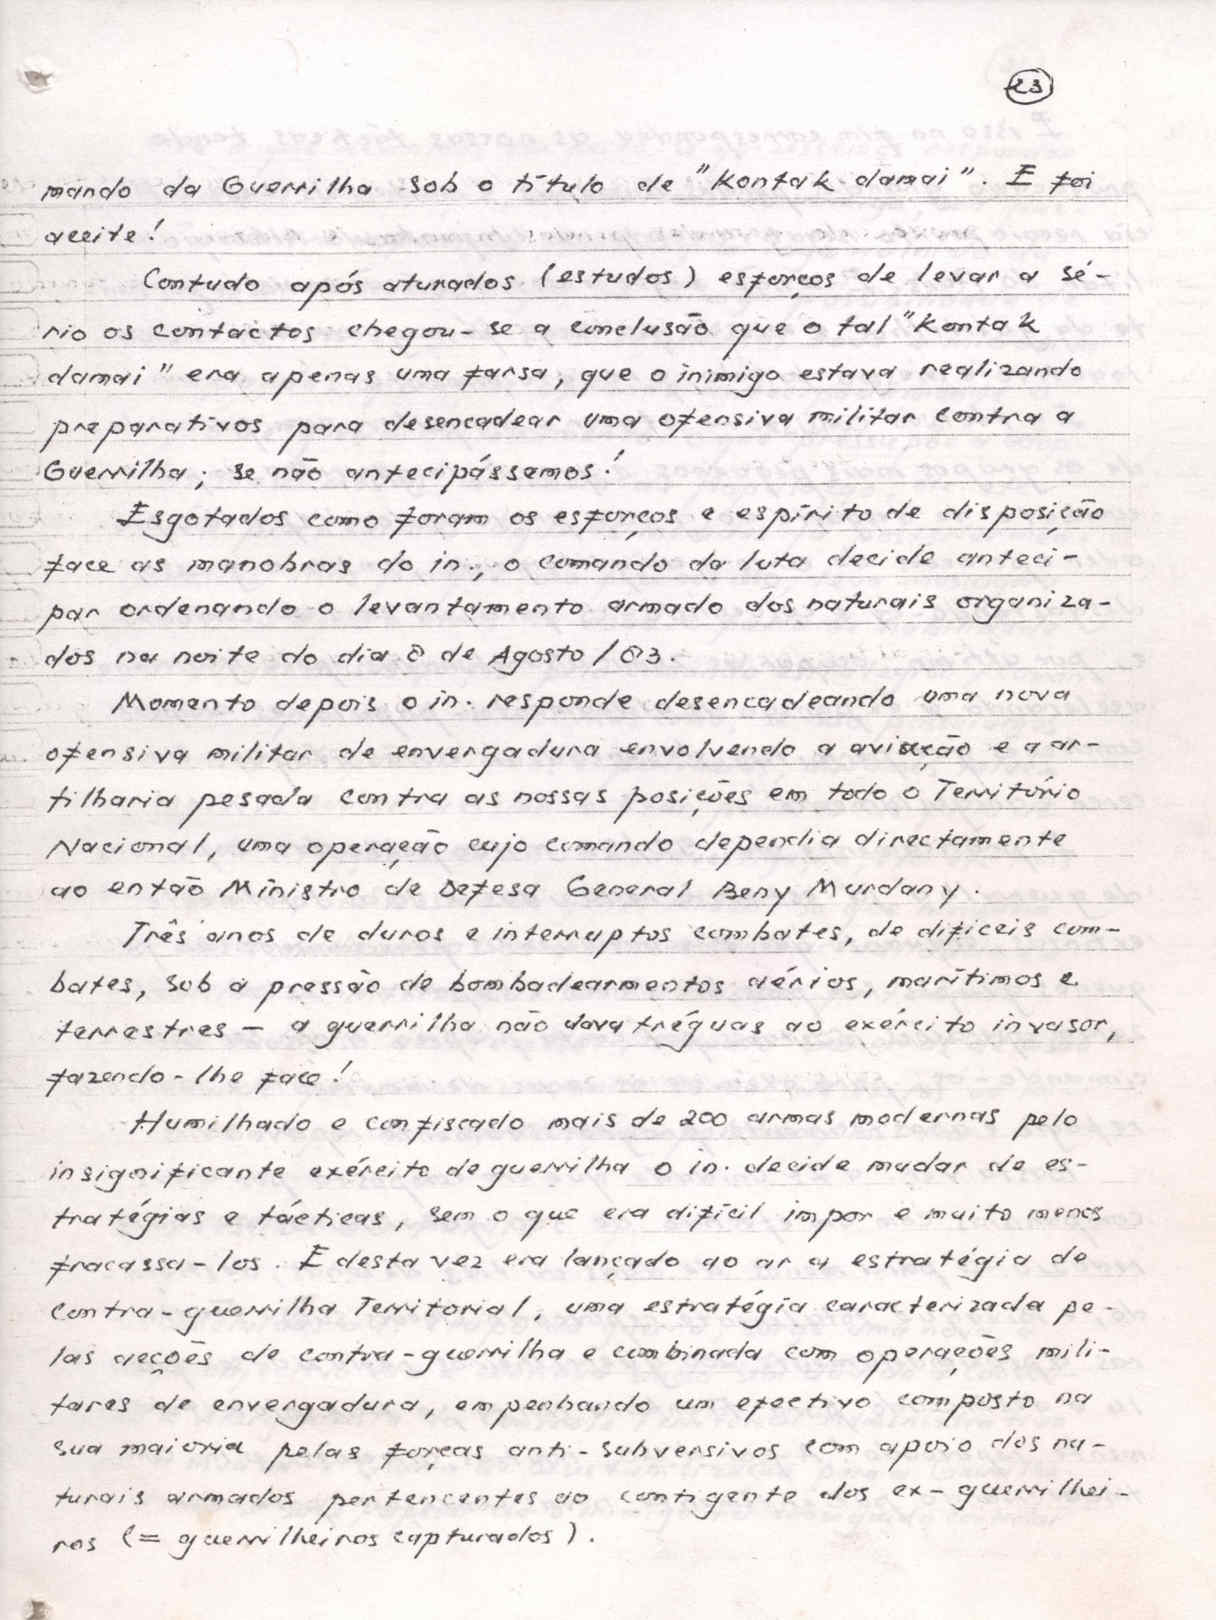 23
mando da Guerrilha sob o título de "Kontak damai". E foi
aceite!
Contudo após aturados (estudos) esforços de levar a sé-
rio os contactos chegou-se a conclusão que o tal "Kontak
damai" era apenas uma farsa, que o inimigo estava realizando
preparativos para desencadear uma ofensiva militar contra a
Guerrilha; se não antecipássemos!
Esgotados como foram os esforços e espírito de disposição
face as manobras do in., o comando da luta decide anteci-
par ordenando o levantamento armado dos naturais organiza-
dos na noite do dia 8 de Agosto/83.
Momento depois o in. responde desencadeando uma nova
ofensiva militar de envergadura envolvendo a aviação e a ar-
tilharia pesada contra as nossas posições em todo o Território
Nacional, uma operação cujo comando dependia directamente
ao então Ministro de Defesa General Beny Murdany.
Três anos de duros e interruptos combates, de dificeis com-
bates, sob a pressão de bombadearmentos aérios, marítimos e
terrestres - a guerrilha não dava tréguas ao exército invasor,
fazendo-lhe face!
Humilhado e confiscado mais de 200 armas modernas pelo
insignificante exército de guerrilha o in. decide mudar de es-
tratégias e tácticas, sem o que era difícil impor e muito menos
fracassa-los. E desta vez era lançado ao ar a estratégia de
contra-guerrilha Territorial, uma estratégia caracterizada pe-
las acções de contra-guerrilha e combinada com operações mili-
tares de envergadura, empenhando um efectivo composto na
sua maioria pelas forças anti-subversivos com apoio dos na-
turais armados pertencentes ao contigente dos ex-guerrilhei-
ros (= guerrilheiros capturados).